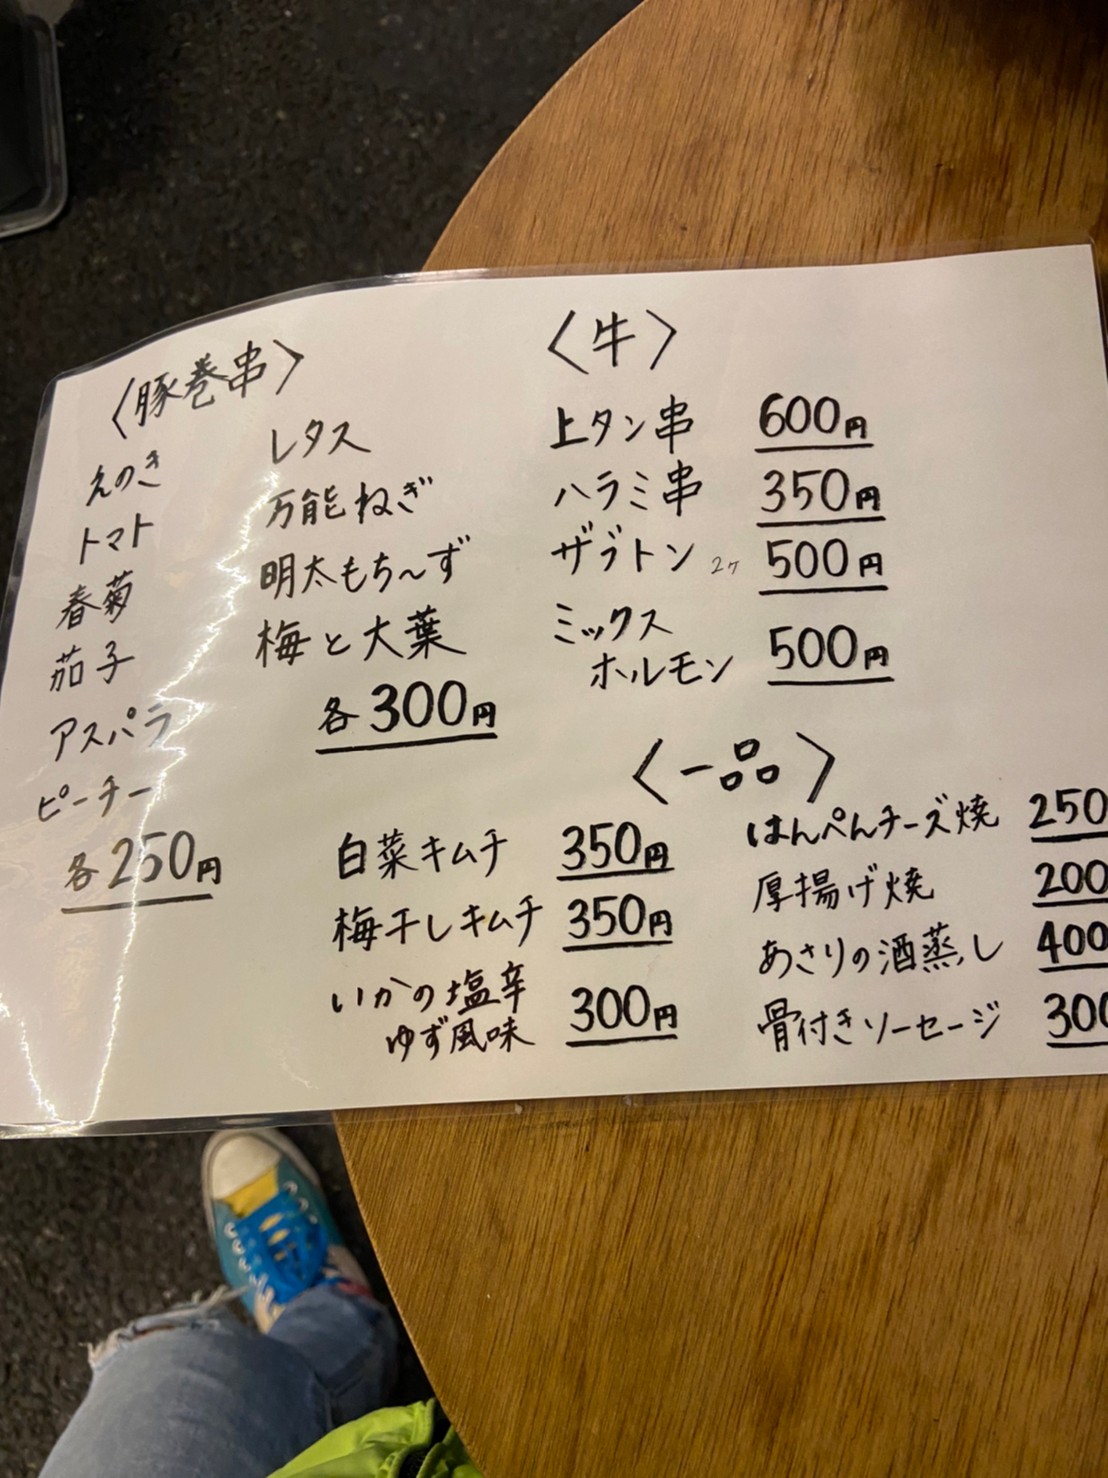 〈豚巻串〉
えのき
トマト
春菊
茄子
アスパラ
ピーチー
各250円
レタス
万能ねぎ
明太もち〜ず
梅と大葉
各300円
〈牛〉
上タン串 600円
ハラミ串 350円
ザブトン 2ヶ 500円
ミックス
ホルモン 500円
〈一品〉
白菜キムチ 350円
梅干しキムチ 350円
いかの塩辛
ゆず風味 300円
はんぺんチーズ焼 250
厚揚げ焼 200
あさりの酒蒸し 400
骨付きソーセージ 300